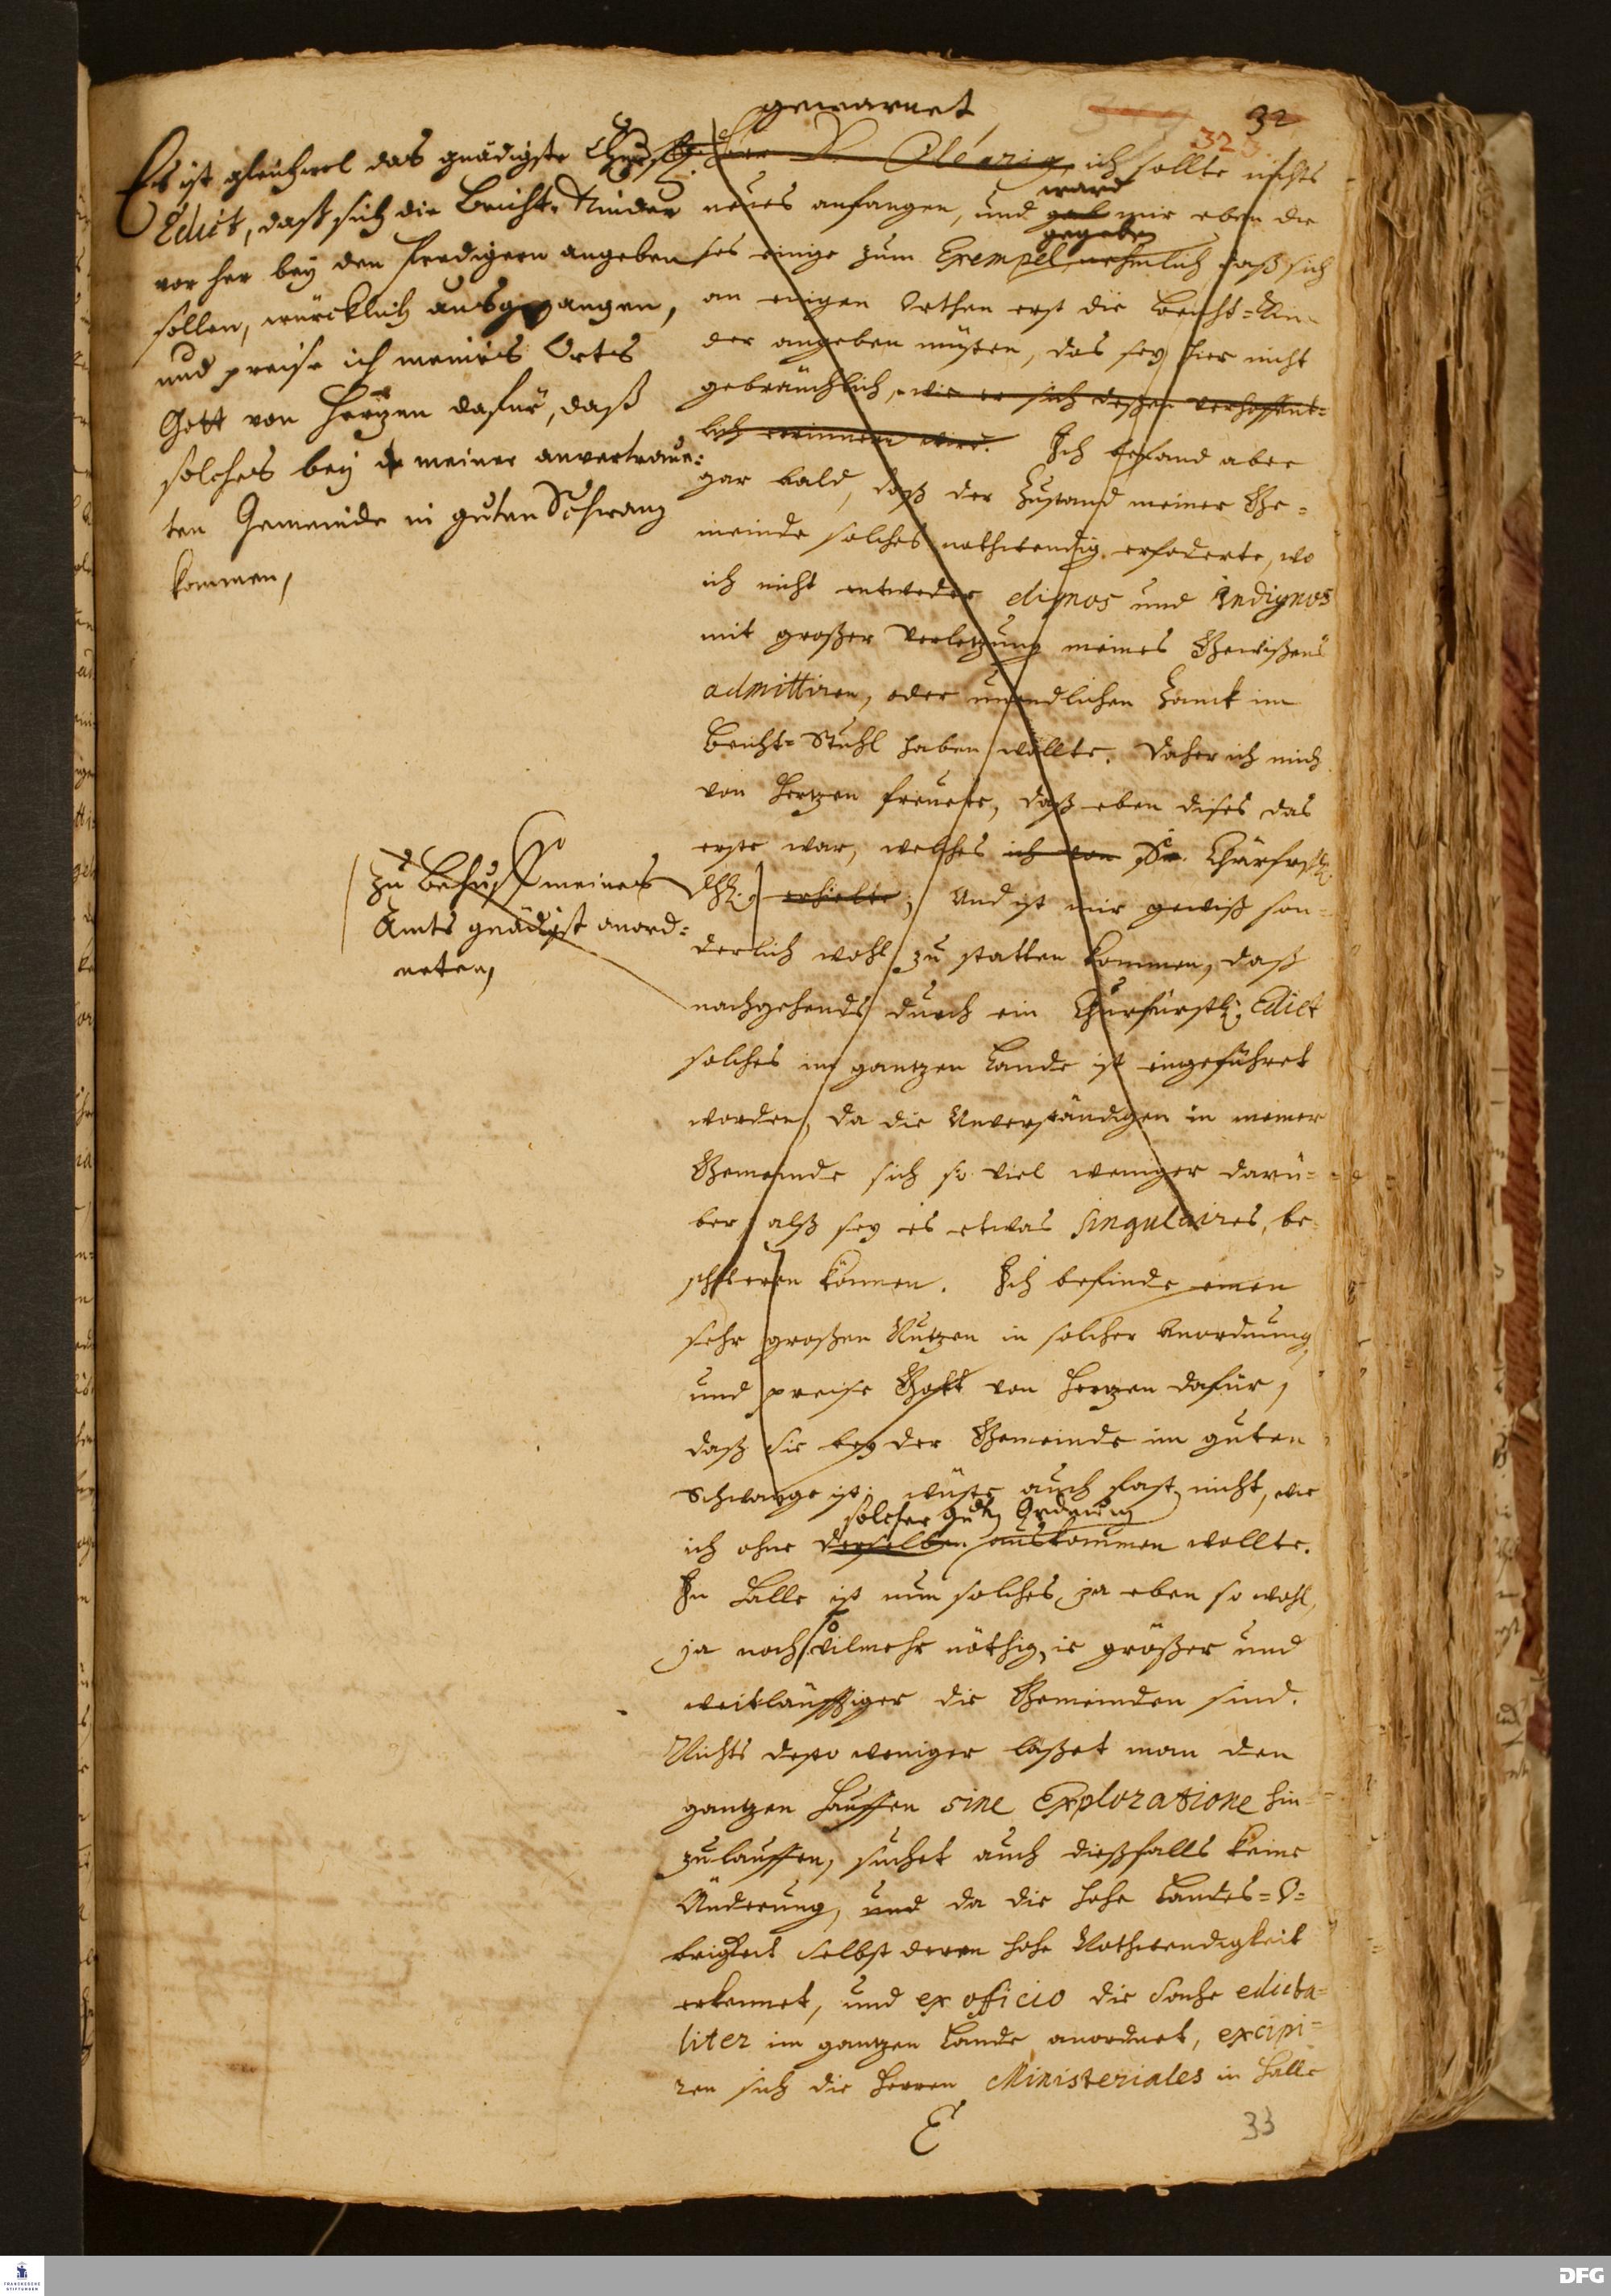 32
323
gewarnet
Es ist gleichwol das gnädigste Churfl.
Edict, daß sich die Beicht-Kinder
vor her bey den Predigern angeben
sollen, würcklich ausgegangen,
und preise ich meines Orts
Gott von Hertzen dafür, daß
solches bey meiner anvertraue-
ten Gemeinde in guten Schwang
kommen,
zu Behuff meines
Amts gnädigst anord-
neten,
Herr D. Olearig, ich sollte nichts
ward
neues anfangen, und gab mir eben die
gegeben
ses einige zum Exempel, nehmlich daß sich
an einigen Orthen erst die Beicht-Kin-
der angeben müsten, das sey hier nicht
gebräuchlich, wie er sich deßen verhoffent-
lich erinnern wird. Ich befand aber
gar bald, daß der Zustand meiner Ge-
meinde solches nothwendig erfoderte, wo
ich nicht entweder dignos und indignos
mit großer Verletzung meines Gewißens
admittiren, oder unendlichen Zanck im
Beicht-Stuhl haben wollte. Daher ich mich
von Hertzen freuete, daß eben dises das
erste war, welches ich von Sr. Churfrstl.
Dhl. erhielte; Und ist mir gewiß son-
derlich wohl zu statten kommen, daß
nachgehends durch ein Churfürstl. Edict
solches im gantzen Lande ist eingeführet
worden, da die Unverständigen in meiner
Gemeinde sich so viel weniger darü-
ber, alß sey es etwas singulaires, be-
schweren können. Ich befinde einen
sehr großen Nutzen in solcher Anordnung,
und preise Gott von Hertzen dafür,
daß sie bey der Gemeinde im guten
Schwange ist; wüste auch fast nicht, wie
solcher guten Ordnung
ich ohne derselben auskommen wollte.
In Halle ist nun solches ja eben so wohl,
so
ja noch vilmehr nöthig, ie größer und
weitläufftiger die Gemeinden sind.
Nichts desto weniger laßet man den
gantzen Hauffen sine Exploratione hin-
zulauffen, suchet auch dießfalls keine
Änderung, und da die hohe Landes-O-
brigkeit selbst deren hohe Nothwendigkeit
erkennet, und ex officio die Sache edicta-
liter im gantzen Lande anordnet, excipi-
ren sich die Herren Ministeriales in Halle
E
33
FRANCKESCHE STIFTUNGEN
DFG